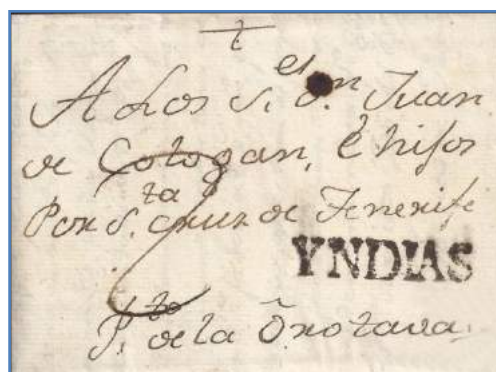 A Los S.es D.n Juan
de Cologan, é hijos
Por S.ta Cruz de Tenerife
YNDIAS
P.to de la Orotava.